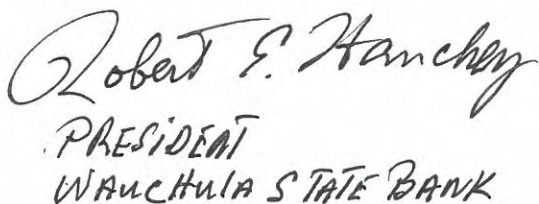 Robert E. Hanchey
PRESIDENT
WAUCHULA STATE BANK